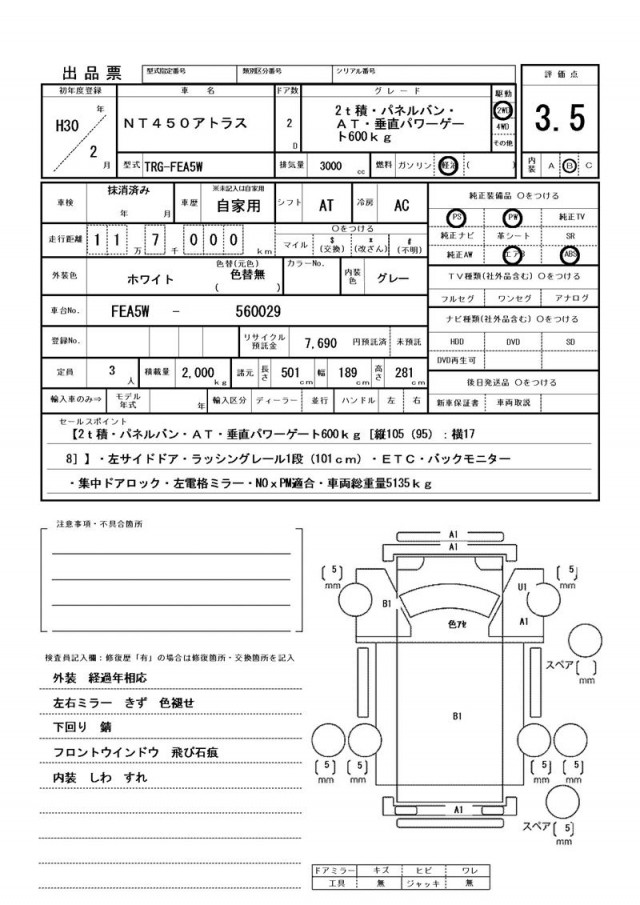 出品票 型式指定番号 類別区分番号 シリアル番号 評価点
初年度登録 車名 ドア数 グレード 駆動
H30 年 2 月 NT450アトラス 2 D 2t積・パネルバン・
AT・垂直パワーゲー
ト600kg 2WD 4WD その他 3.5
型式 TRG-FEA5W 排気量 3000 cc 燃料 ガソリン 軽油 ( ) 内装 A B C
車検 抹消済み 年 月 車歴 ※未記入は自家用 自家用 シフト AT 冷房 AC 純正装備品 〇をつける
PS PW 純正TV
走行距離 11 万 7 千 000 km 〇をつける マイル $(交換) *(改ざん) #(不明) 純正ナビ 革シート SR
純正AW エアB ABS
外装色 ホワイト 色替(元色) 色替無 ( ) カラーNo. 内装色 グレー TV種類(社外品含む) 〇をつける
フルセグ ワンセグ アナログ
車台No. FEA5W - 560029 ナビ種類(社外品含む) 〇をつける
登録No. リサイクル預託金 7,690 円預託済 未預託 HDD DVD SD
DVD再生可
定員 3 人 積載量 2,000 kg 諸元 長さ 501 cm 幅 189 cm 高さ 281 cm 後日発送品 〇をつける
輸入車のみ⇒ モデル年式 年 輸入区分 ディーラー 並行 ハンドル 左 右 新車保証書 車両取説
セールスポイント
【2t積・パネルバン・AT・垂直パワーゲート600kg[縦105(95):横17
8]】・左サイドドア・ラッシングレール1段(101cm)・ETC・バックモニター
・集中ドアロック・左電格ミラー・NOxPM適合・車両総重量5135kg
注意事項・不具合箇所
A1
A1
[5] mm [5] mm
B1 U1
色アセ A1
検査員記入欄:修復歴「有」の場合は修復箇所・交換箇所を記入
スペア[ ] mm
外装 経過年相応
左右ミラー きず 色褪せ
B1
下回り 錆
フロントウインドウ 飛び石痕
[5] mm [5] mm [5] mm [5] mm
内装 しわ すれ
A1
スペア[5] mm
ドアミラー キズ ヒビ ワレ
工具 無 ジャッキ 無